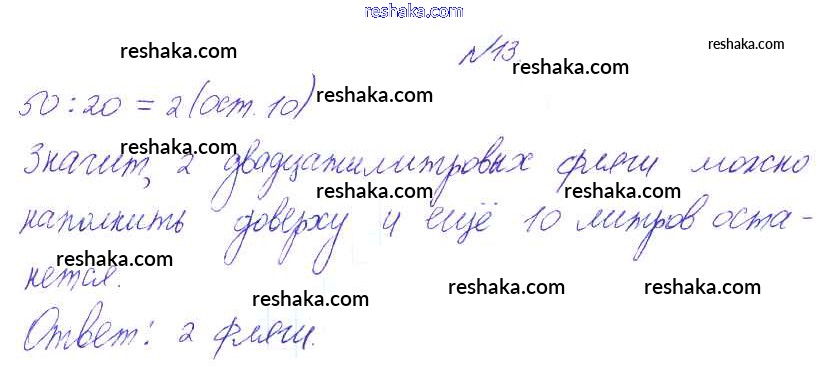 reshaka.com
reshaka.com №13 reshaka.com
50:20 = 2(ост. 10) reshaka.com reshaka.com
reshaka.com
Значит, 2 двадцатилитровых фляги можно
reshaka.com reshaka.com
наполнить доверху и ещё 10 литров оста-
reshaka.com reshaka.com
нется.
reshaka.com reshaka.com
Ответ: 2 фляги.